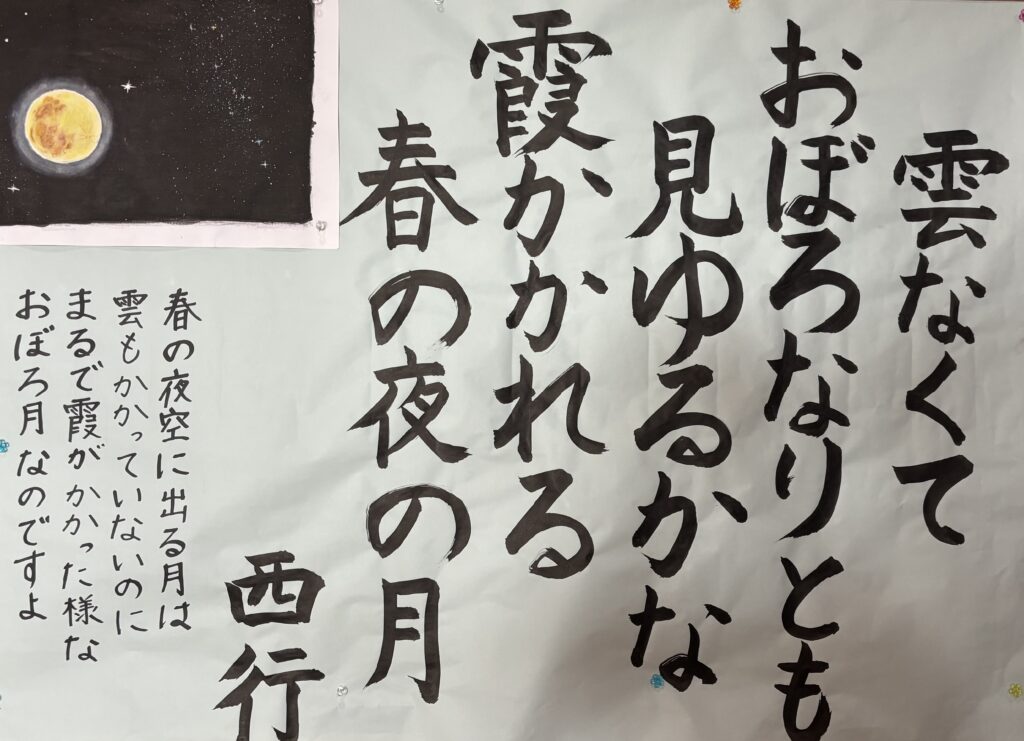 雲なくて
おぼろなりとも
見ゆるかな
霞かかれる
春の夜の月
西行
春の夜空に出る月は
雲もかかっていないのに
まるで霞がかかった様な
おぼろ月なのですよ